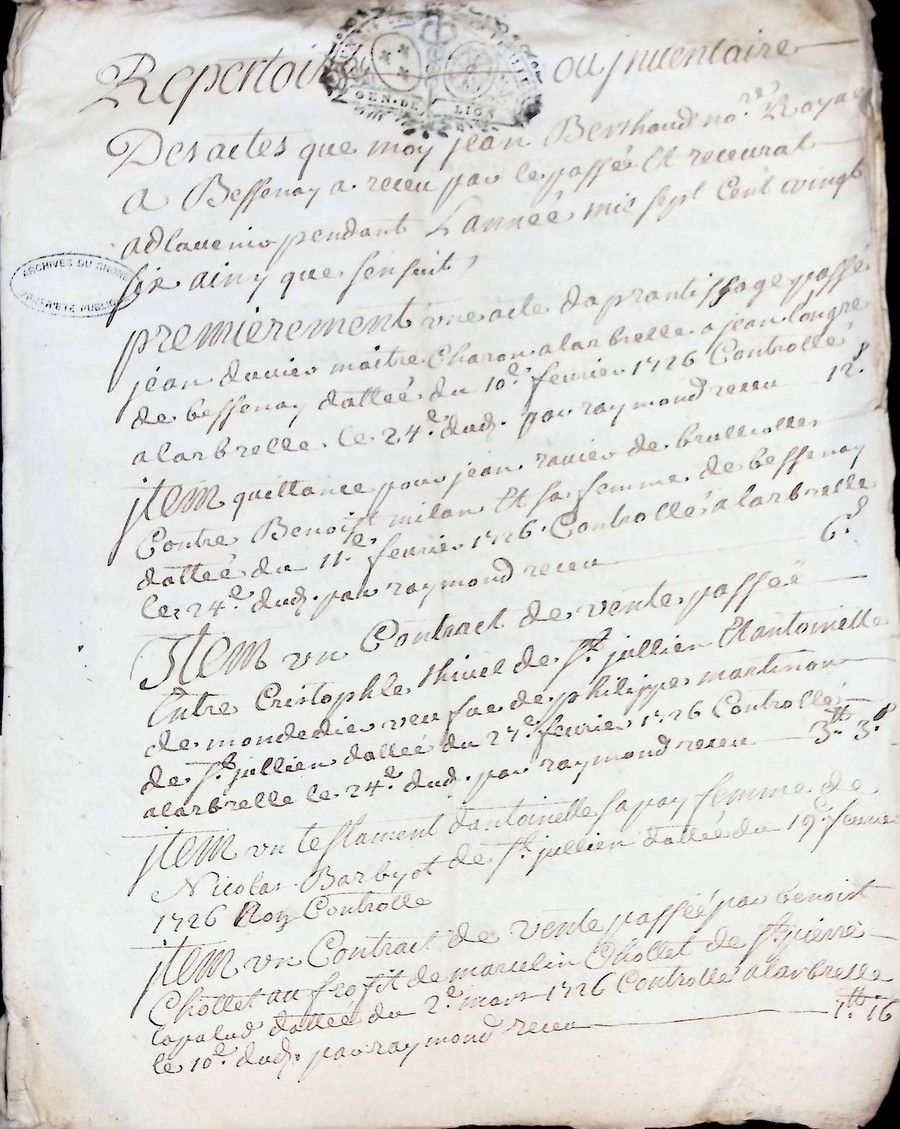 Repertoire ou jnventaire
GEN · DE LION
Des actes que moy jean Berthaud no.re Royal
a Bessenay a receu par le passé Et recevrat
adlavenir pendant L'année mis sept Cent vvingt
six ainy que sensuit,
ARCHIVES DU RHONE
PROPRIÉTÉ PUBLIQUE
premierement une acte daprantissage passé
jean duvier maitre Charon alarbrelle a jean longre
de bessenay datteé du 10.e fevrier 1726 Controllé
alarbrelle. le 24.e dud. par raymond receu 12.s
jtem quittance pour jean ravier de brulliolles
Contre Benoist milan Et sa femme de bessenay
datteé du 11.e fevrier 1726. Controllé alarbrelle
le 24.e dud. par raymond receu 6.s
Jtem un Contract de vente passée
Entre Cristophle thivel de st. jullien Et antoinette
de mondedier veufue de philippe martinon
de st. jullien datteé du 27.e fevrier 1726 Controllé
alarbrelle le 24.e dud. par raymond receu 3.tt 3.s
jtem un testament dantoinette sapay femme de
Nicolas Barbyot de st. jullien datteé du 19.e fevrier
1726 Non Controlle
jtem un Contract de vente passée par benoist
Chollet au profit de marcelin Chollet de st. pierre
lapalud datteé du 2.e mars 1726 Controllé alarbrelle
le 10.e dud. par raymond receu 1.tt 16